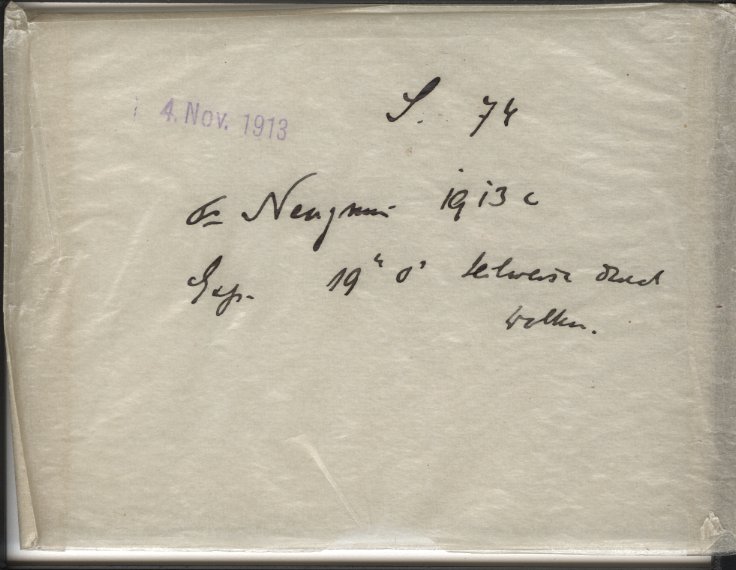 4. Nov. 1913
S. 74
Neujmin 1913 c
Exp. 19h 0m teilweise durch
Wolken.